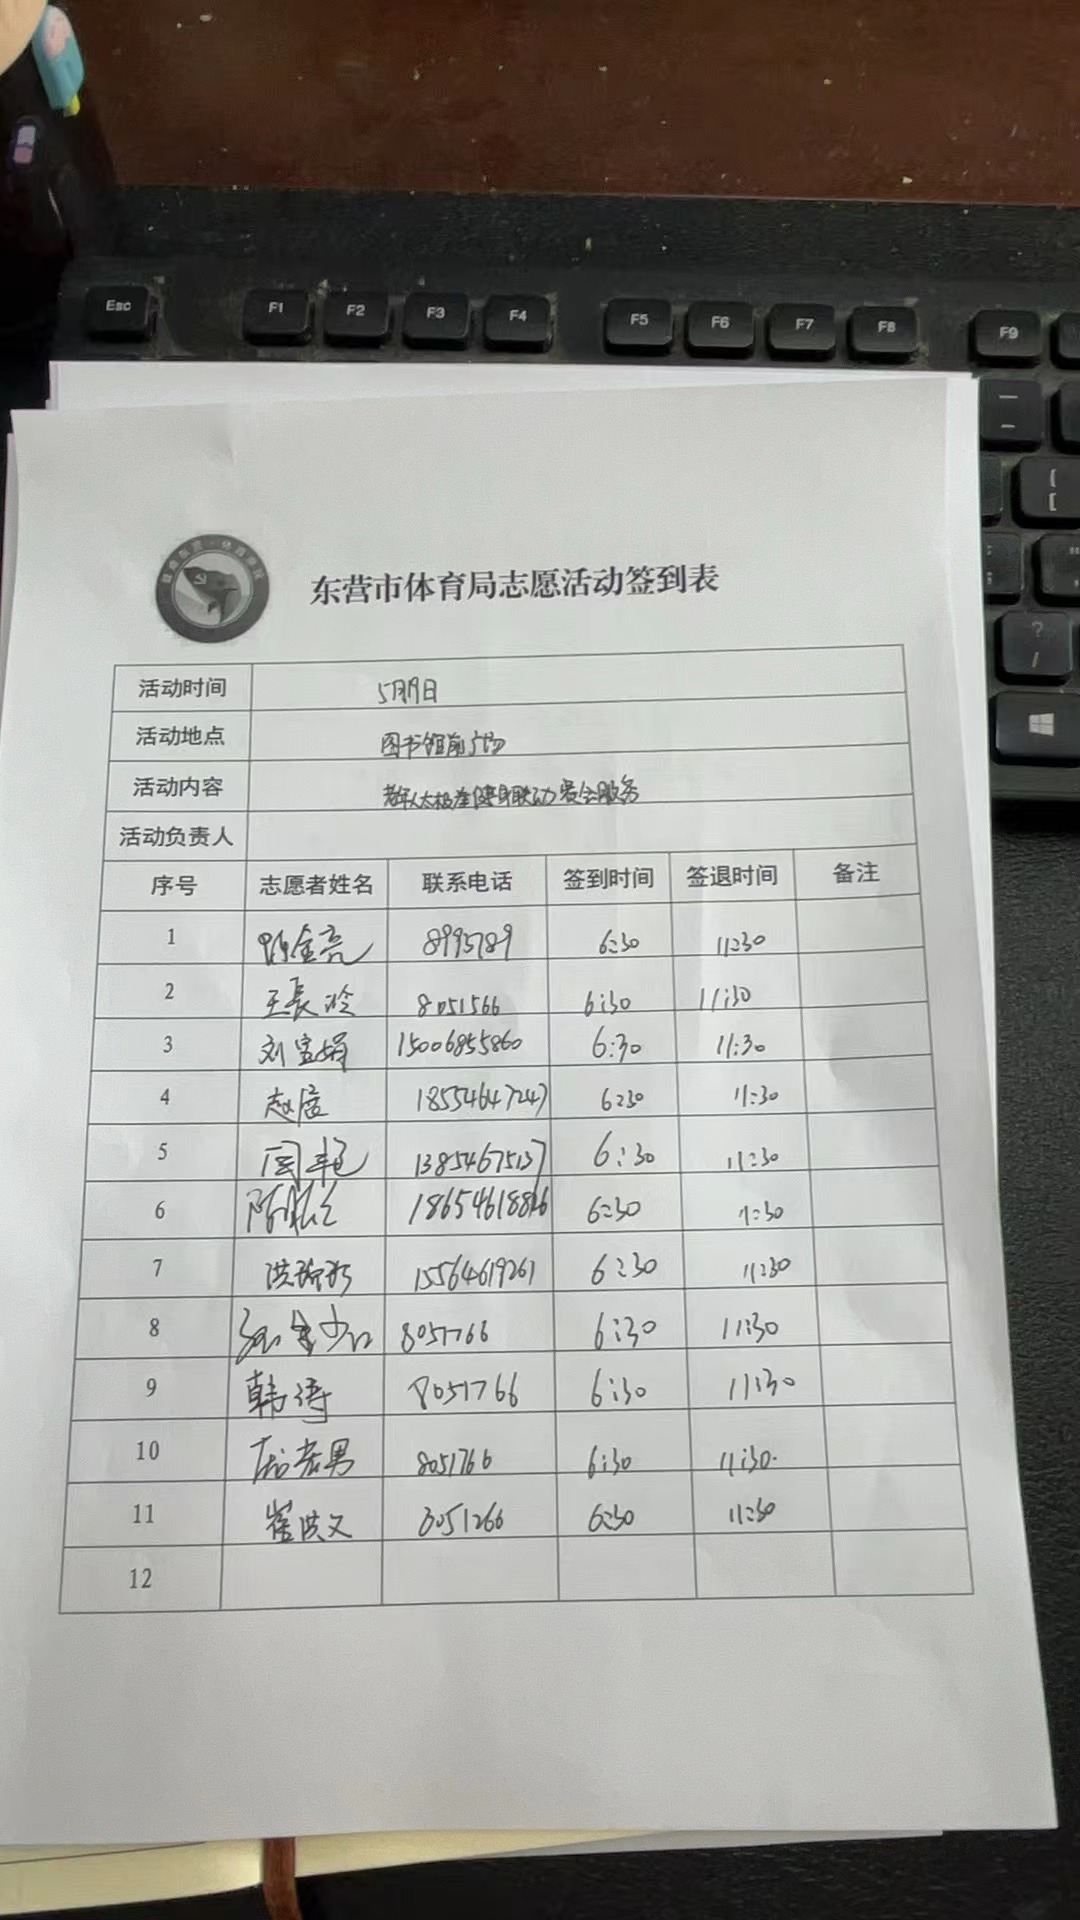 Esc F1 F2 F3 F4 F5 F6 F7 F8 F9
东营市体育局志愿活动签到表
活动时间 5月19日
活动地点 图书馆前广场
活动内容 老年人太极拳健身联动赛会服务
活动负责人
序号 志愿者姓名 联系电话 签到时间 签退时间 备注
1 8995789 6:30 11:30
2 王长玲 8051566 6:30 11:30
3 刘宝娟 15006855860 6:30 11:30
4 18554647247 6:30 11:30
5 周艳 13854675137 6:30 11:30
6 6:30 11:30
7 15564619261 6:30 11:30
8 8051766 6:30 11:30
9 韩涛 8051766 6:30 11:30
10 8051766 6:30 11:30
11 崔洪文 8051266 6:30 11:30
12